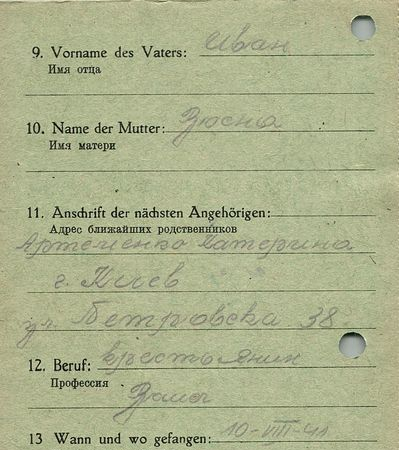 9. Vorname des Vaters: Иван
Имя отца
10. Name der Mutter:
Имя матери
11. Anschrift der nächsten Angehörigen:
Адрес ближайших родственников
Артеменко Катерина
г. Киев
ул. Петровска 38
12. Beruf: крестьянин
Профессия
13 Wann und wo gefangen: 10-VIII-41